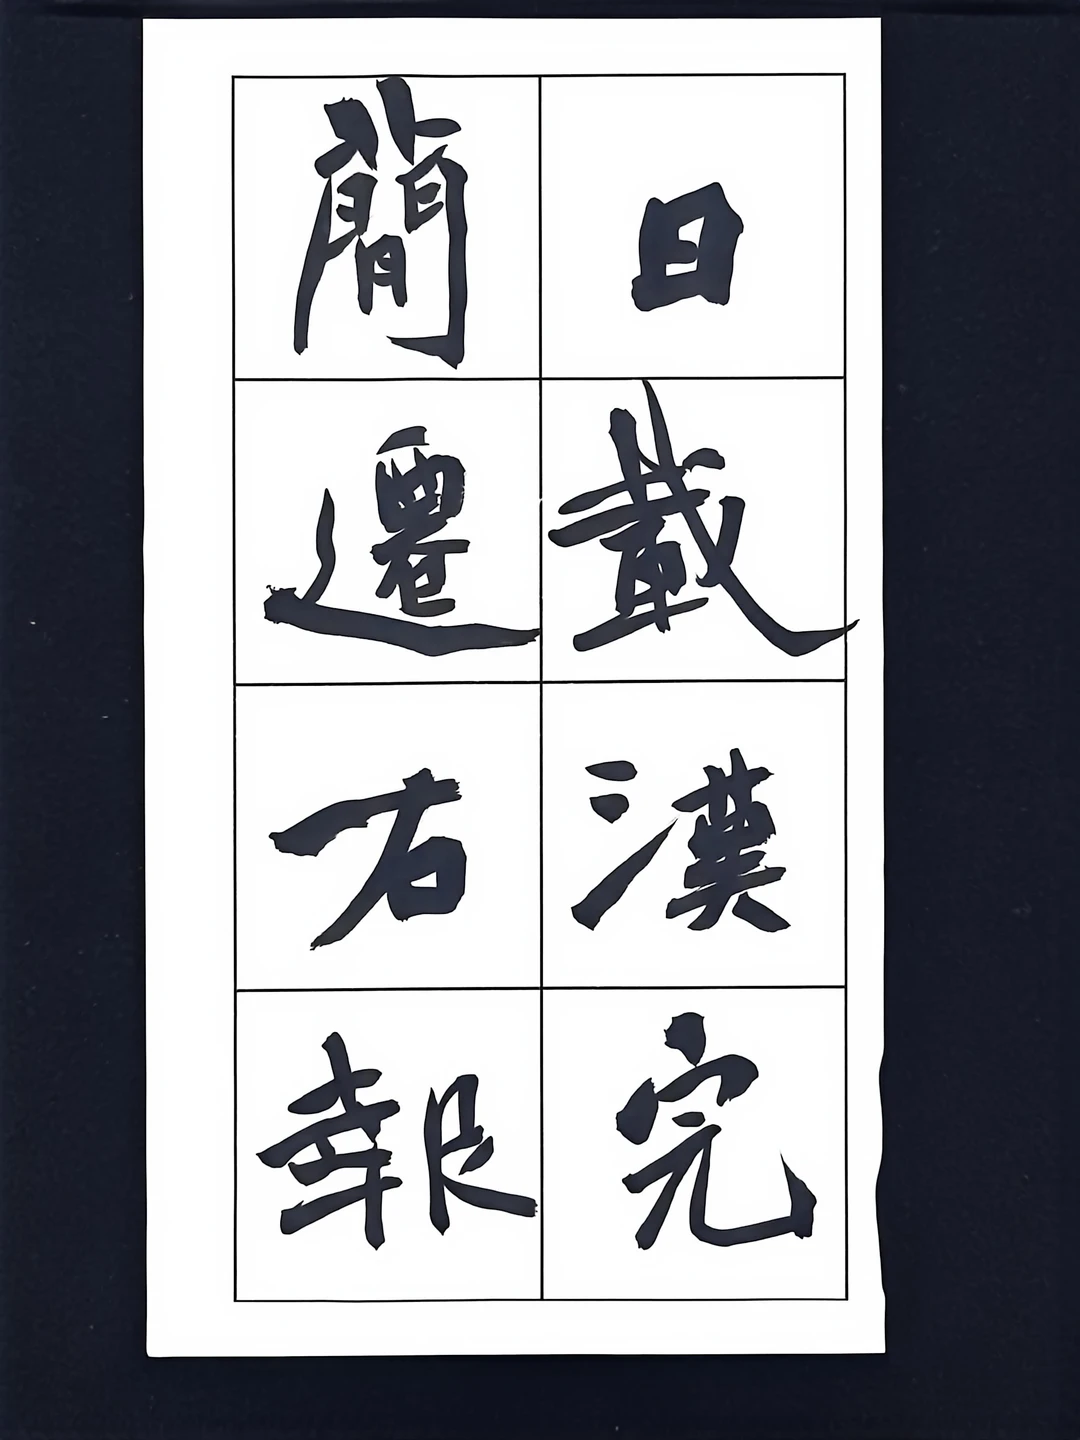 日載漢完
簡遷右報